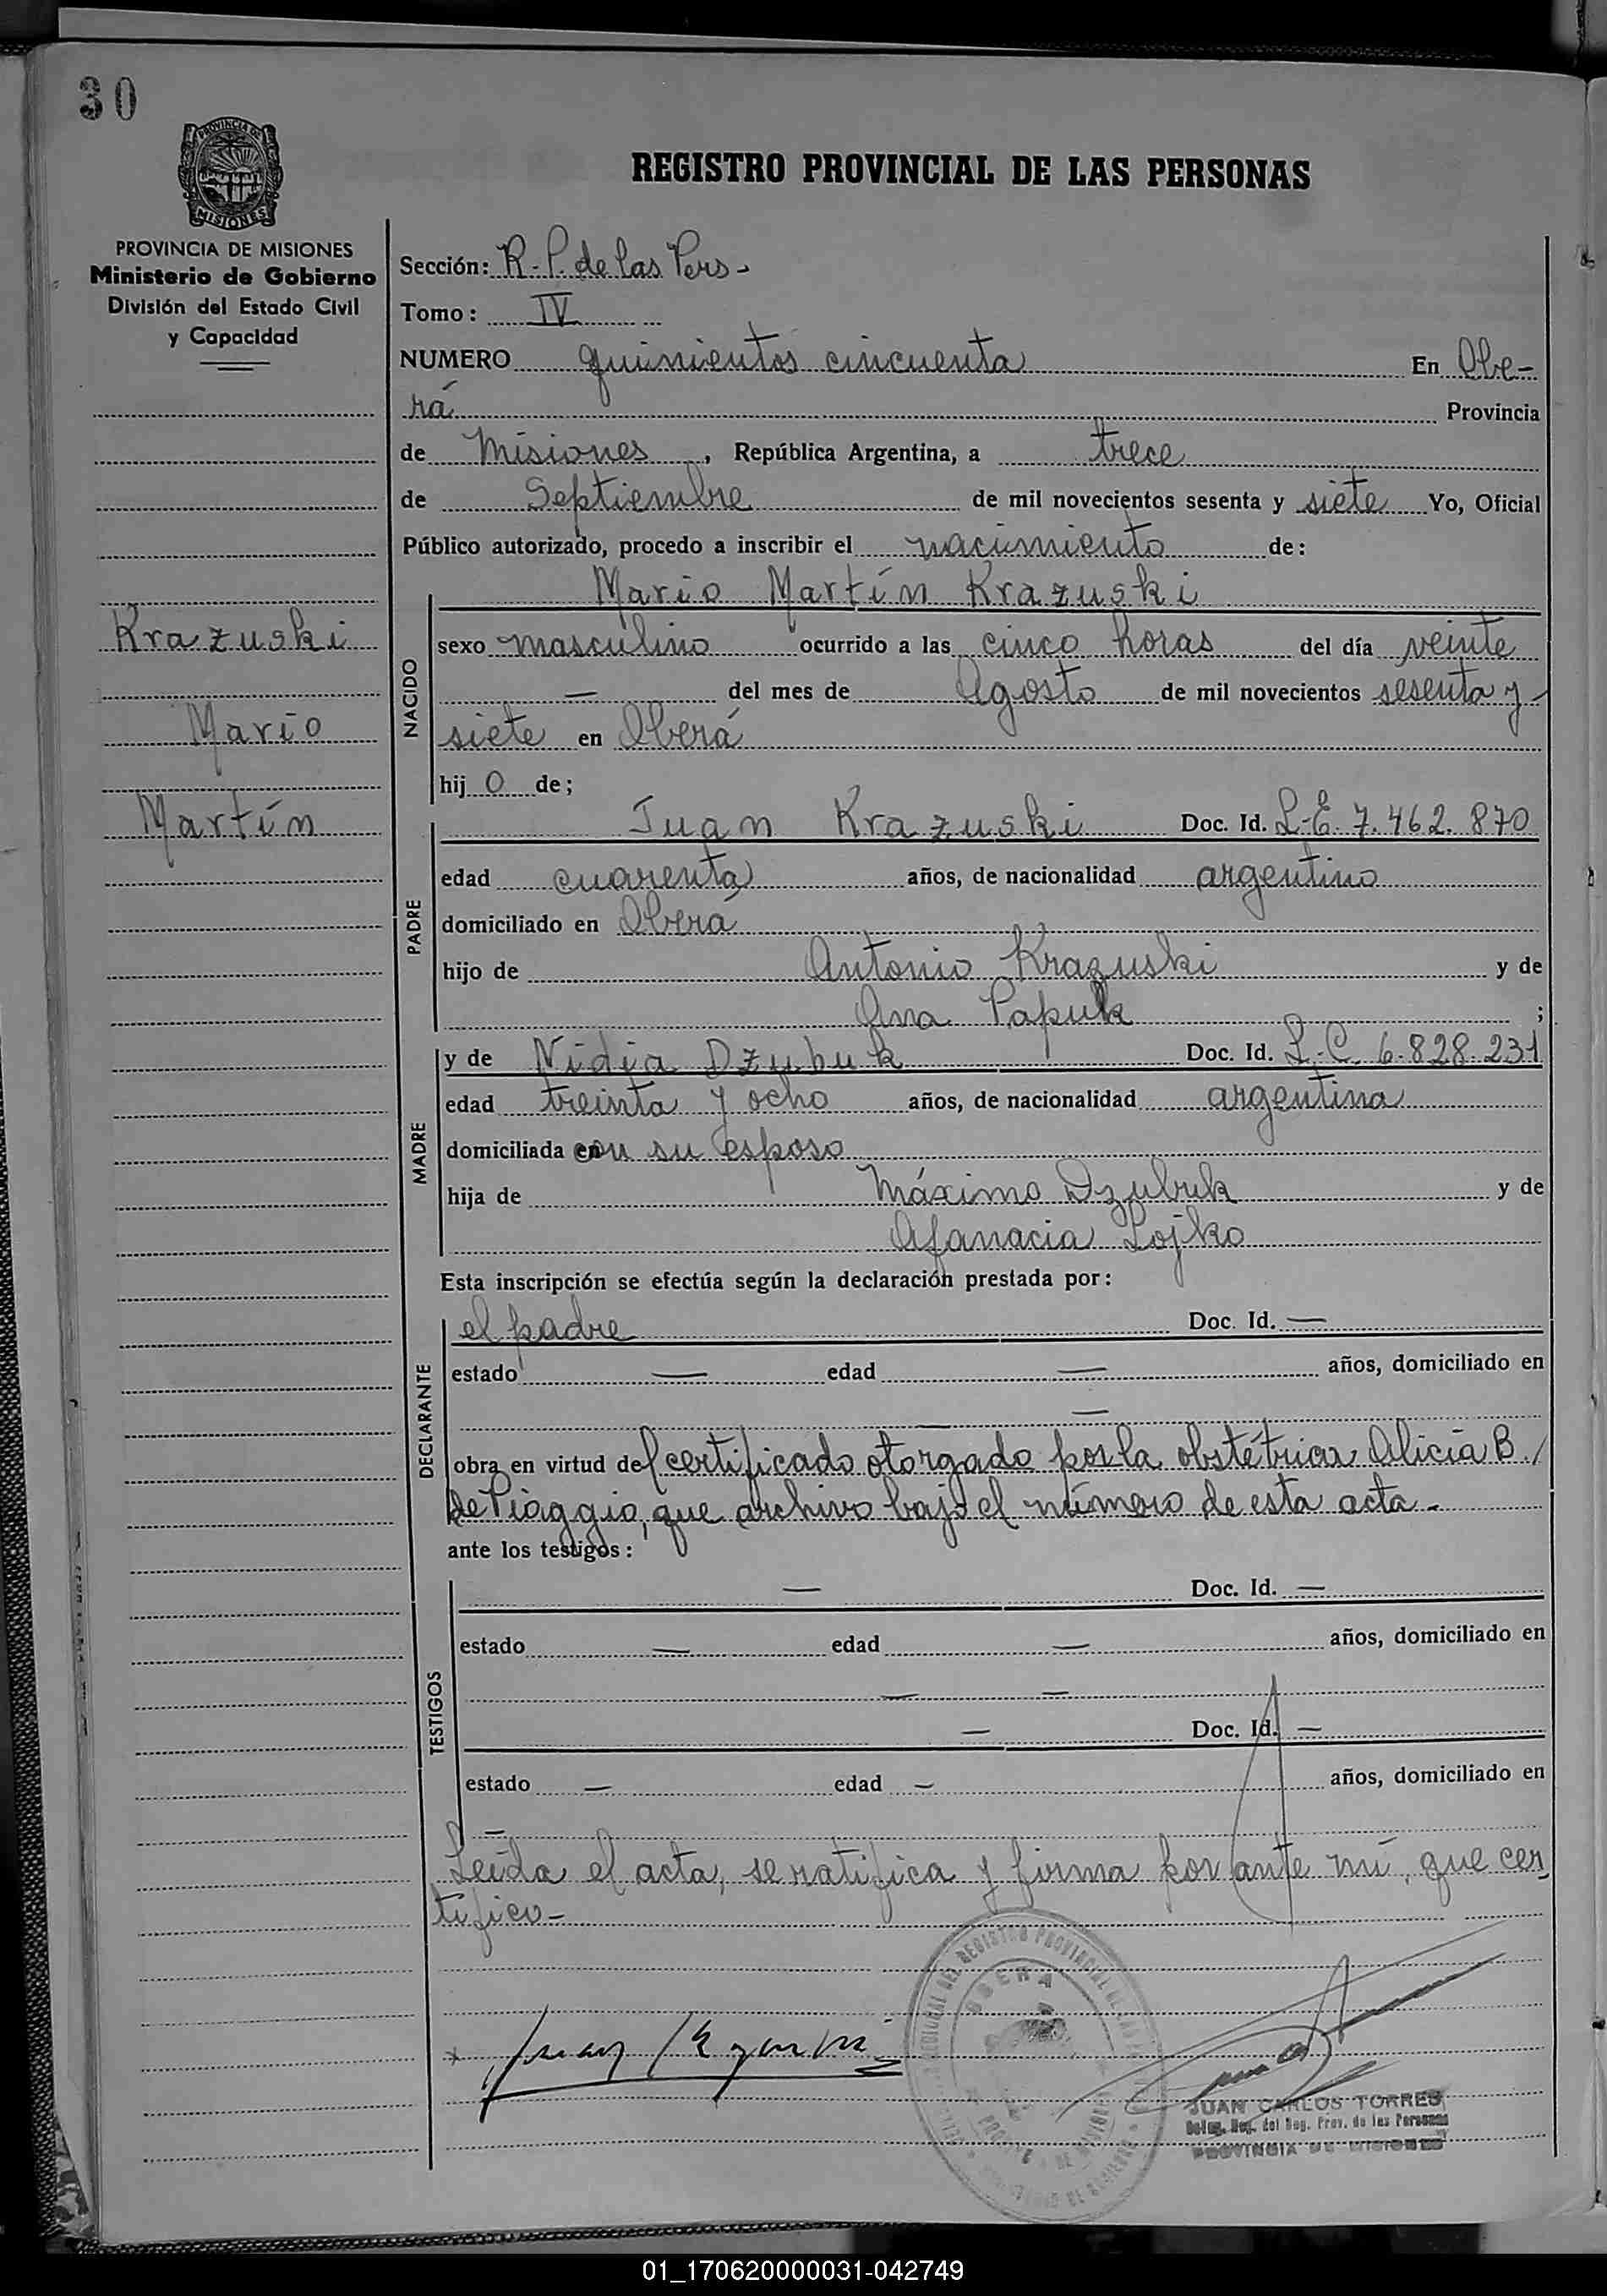 30
PROVINCIA DE
MISIONES
PROVINCIA DE MISIONES
Ministerio de Gobierno
División del Estado Civil
y Capacidad
Krazuski
Mario
Martín
REGISTRO PROVINCIAL DE LAS PERSONAS
Sección: R.P. de las Pers-
Tomo: IV
NUMERO quinientos cincuenta En Obe-
rá Provincia
de Misiones, República Argentina, a trece
de Septiembre de mil novecientos sesenta y siete Yo, Oficial
Público autorizado, procedo a inscribir el nacimiento de:
Mario Martín Krazuski
NACIDO
sexo masculino ocurrido a las cinco horas del día veinte
— del mes de Agosto de mil novecientos sesenta y
siete en Oberá
hijo de;
PADRE
Juan Krazuski Doc. Id. L.E. 7.462.870
edad cuarenta años, de nacionalidad argentino
domiciliado en Oberá
hijo de Antonio Krazuski y de
Ana Papuk ;
MADRE
y de Nidia Dzubuk Doc. Id. L.C. 6.828.231
edad treinta y ocho años, de nacionalidad argentina
domiciliada con su esposo
hija de Máximo Dzubuk y de
Afanacia Lojko
Esta inscripción se efectúa según la declaración prestada por:
DECLARANTE
el padre Doc. Id. —
estado — edad — años, domiciliado en
—
obra en virtud del certificado otorgado por la obstétrica Alicia B.
de Piaggio, que archivo bajo el número de esta acta-
ante los testigos:
TESTIGOS
— Doc. Id. —
estado — edad — años, domiciliado en
— —
— Doc. Id. —
estado — edad — años, domiciliado en
—
Leída el acta, se ratifica y firma por ante mí, que cer
tifico-
OBERA
JUAN CARLOS TORRES
Deleg. Reg. del Reg. Prov. de las Personas
PROVINCIA DE MISIONES
01_170620000031-042749